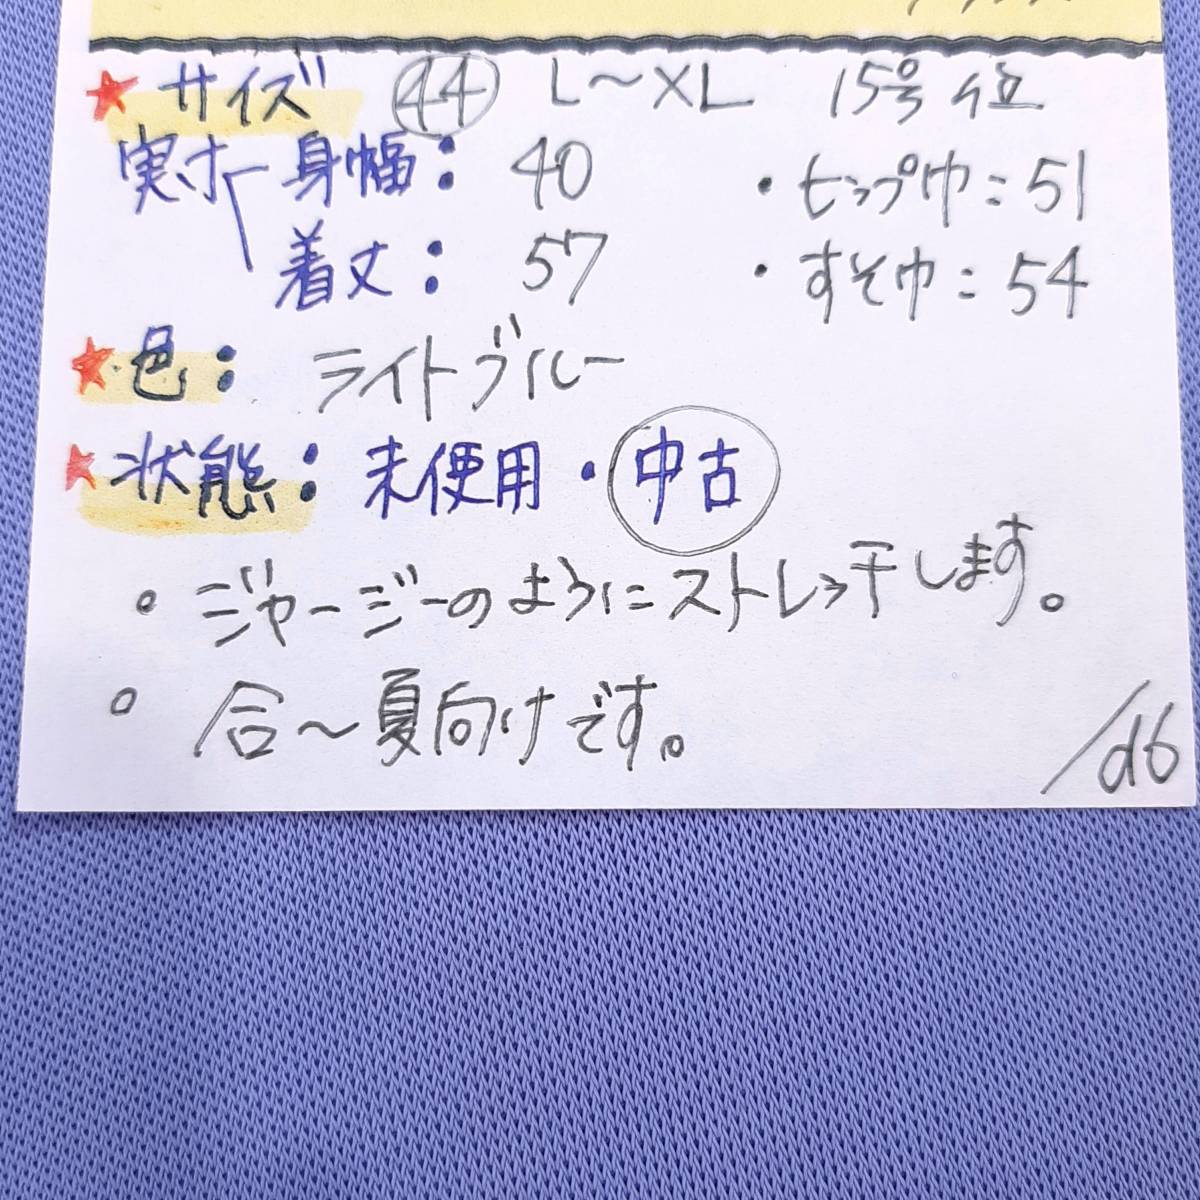 ★サイズ 44 L〜XL 15号位
実寸 身幅：40 ・ヒップ巾：51
着丈：57 ・すそ巾：54
★色：ライトブルー
★状態：未使用・中古
。ジャージーのようにストレッチします。
。合〜夏向けです。
/d6